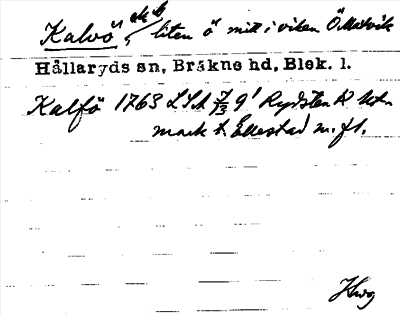 Kalvö, ek b, liten ö mitt i viken Ö Matvik
Hällaryds sn, Bräkne hd, Blek. l.
Kalfö 1763 LSA 7/3 91 Rydsten R utm
mark t. Ellestad m. fl.